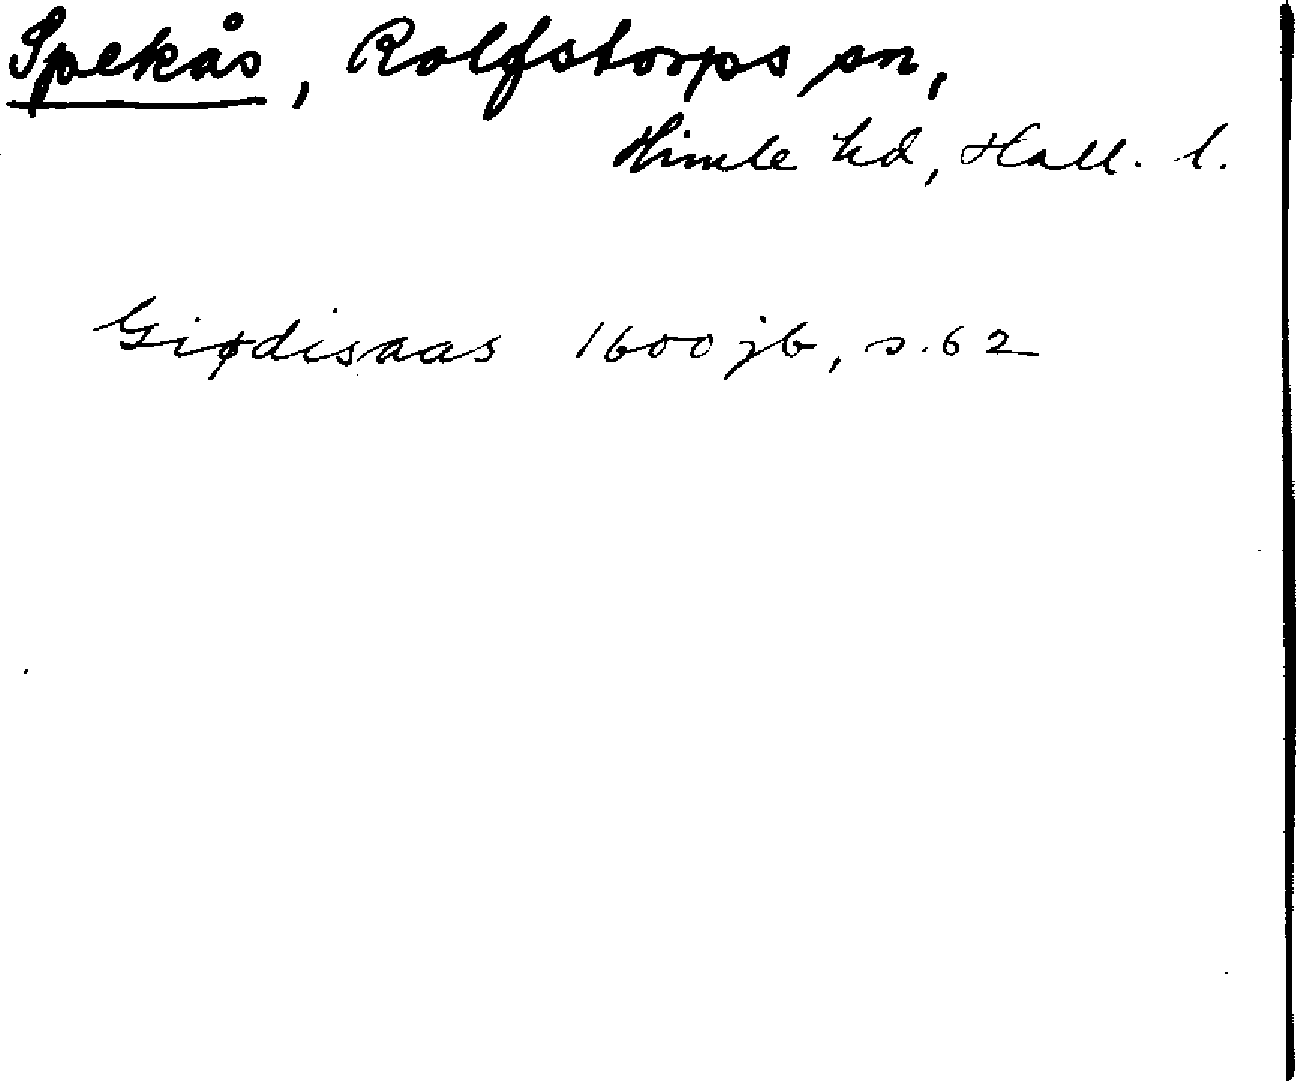 Spekås, Rolfstorps sn,
Himle hd, Hall. l.
Giødisaas 1600 jb, s. 62